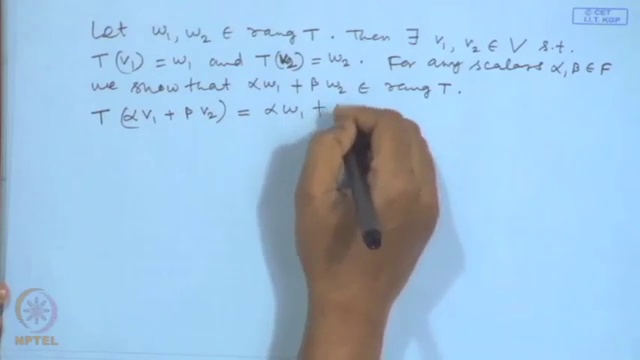 © CET
I.I.T. KGP
Let w₁, w₂ ∈ rang T. Then ∃ v₁, v₂ ∈ V s.t.
T(v₁) = w₁ and T(v₂) = w₂. For any scalars α, β ∈ F
we show that αw₁ + βw₂ ∈ rang T.
T(αv₁ + βv₂) = αw₁ +
NPTEL